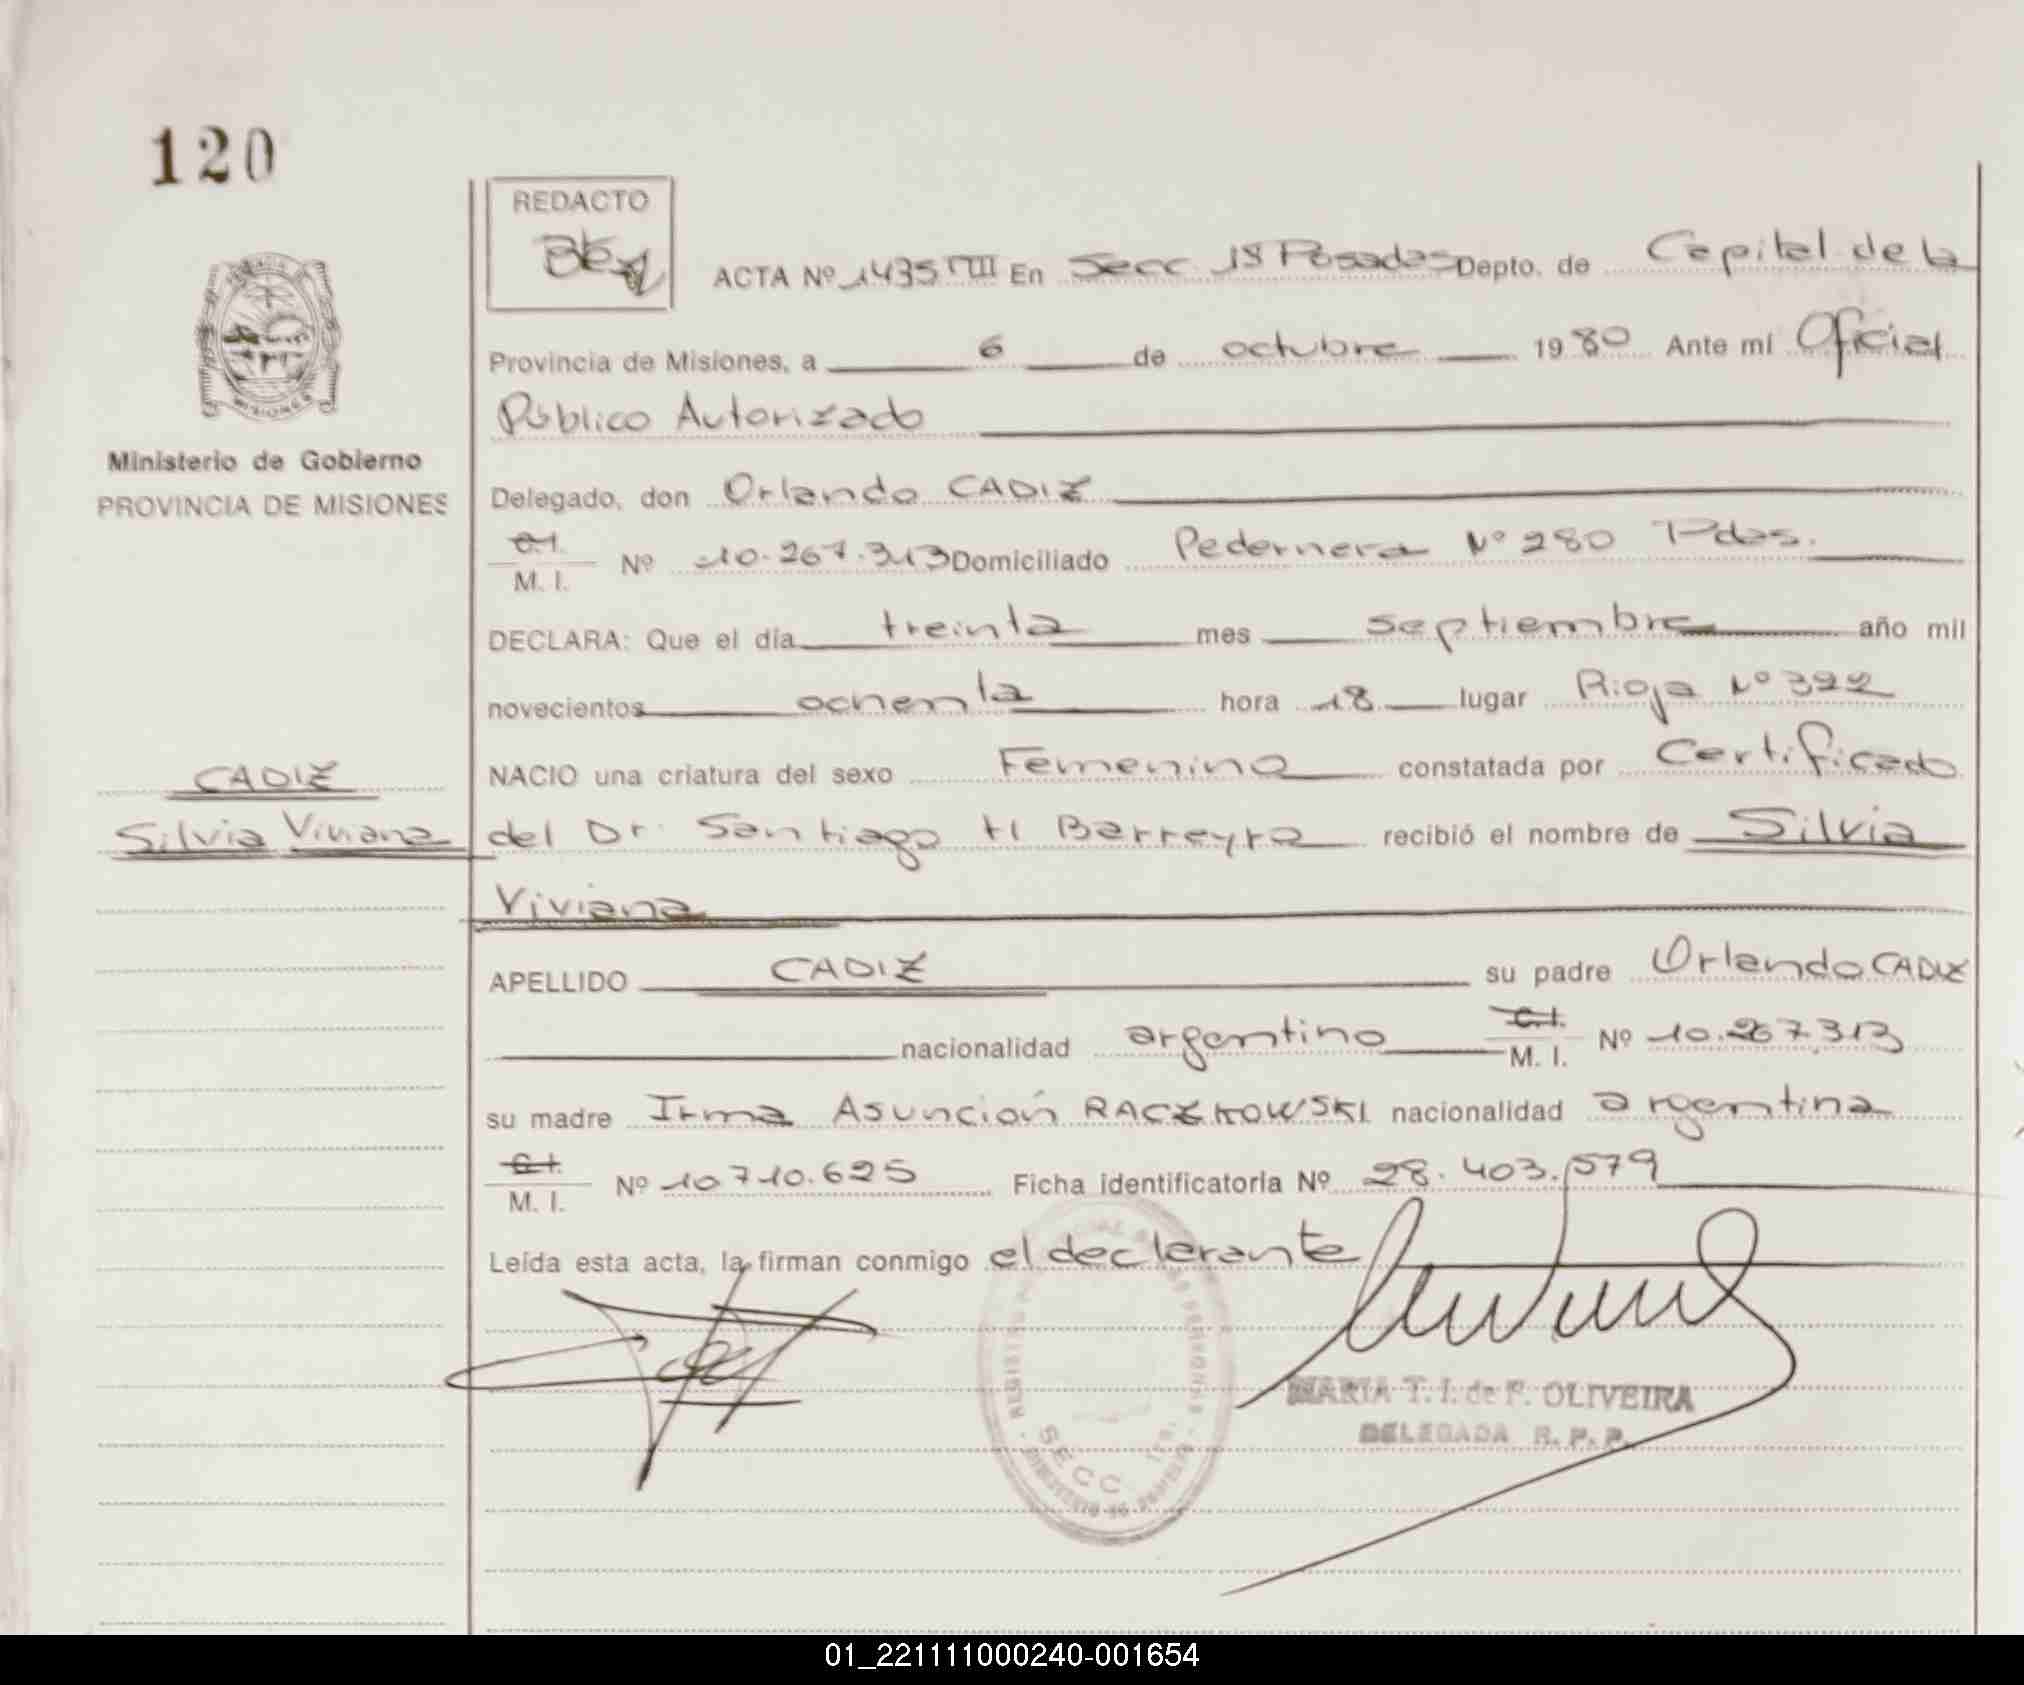 120
REDACTO
ACTA Nº 1435 TVIII En Secc 1ª Posadas Depto. de Capital de la
Provincia de Misiones, a 6 de octubre 1980 Ante mí Oficial
Público Autorizado
MISIONES
Ministerio de Gobierno
PROVINCIA DE MISIONES
Delegado, don Orlando CADIZ
C.I.
M. I. Nº 10.267.313 Domiciliado Pedernera Nº 280 Pdas.
DECLARA: Que el día treinta mes septiembre año mil
novecientos ochenta hora 18 lugar Rioja Nº 322
CADIZ
Silvia Viviana
NACIO una criatura del sexo Femenino constatada por Certificado
del Dr. Santiago H Barreyro recibió el nombre de Silvia
Viviana
APELLIDO CADIZ su padre Orlando CADIZ
nacionalidad argentino C.I. M. I. Nº 10.267.313
su madre Irma Asunción RACZKOWSKI nacionalidad argentina
C.I.
M. I. Nº 10.710.625 Ficha identificatoria Nº 28.403.579
Leída esta acta, la firman conmigo el declarante
SECC 1ra.
MARIA T. I. de F. OLIVEIRA
DELEGADA R. P. P.
01_221111000240-001654